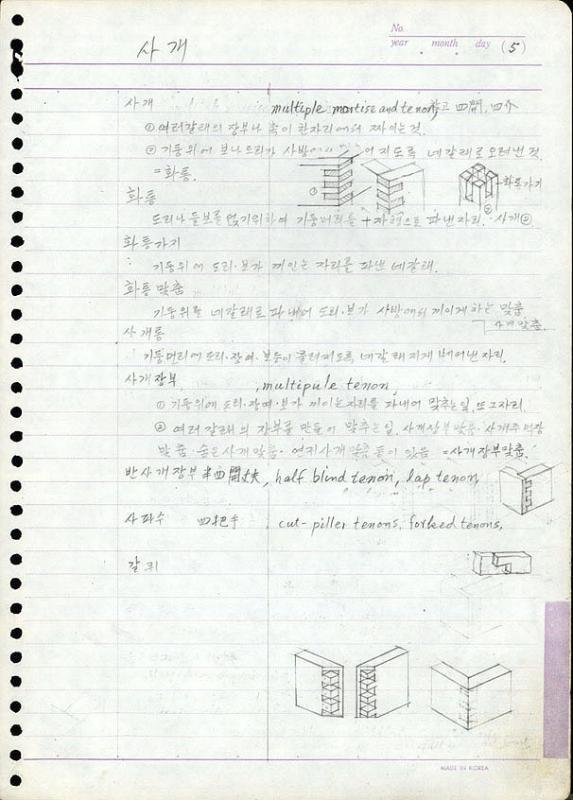 No.
year . month . day (5)
사 개
사개 multiple mortise and tenon, 四開, 四介
① 여러갈래의 장부나 촉이 한자리에서 짜이는 것.
② 기둥위에 보나 도리가 사방 어지도록 네갈래로 오려낸 것.
= 화통.
①
화통가지
②
화통
도리나 들보를 얹기위하여 기둥머리를 +자형으로 파낸자리. 사개②
화통가지
기둥위에 도리·보가 끼이는 자리를 파낸 네갈래.
화통맞춤
기둥위를 네갈래로 파내어 도리·보가 사방에서 끼이게 하는 맞춤.
사개맞춤.
사개통
기둥머리에 도리·장여·보 물려지도록 네갈래지게 베어낸 자리.
사개장부 , multipule tenon,
① 기둥위에 도리·장여·보가 끼이는자리를 파내어 맞추는일, 또 그자리.
② 여러갈래의 장부를 만들어 맞추는일. 사개장부맞춤·사개
맞춤·숨은사개맞춤·연귀사개맞춤 들이 있음 =사개장부맞춤.
반사개장부 半四開丈夫, half blind tenon, lap tenon,
사파수 四把手 cut-piller tenons, forked tenons,
갈퀴
MADE IN KOREA